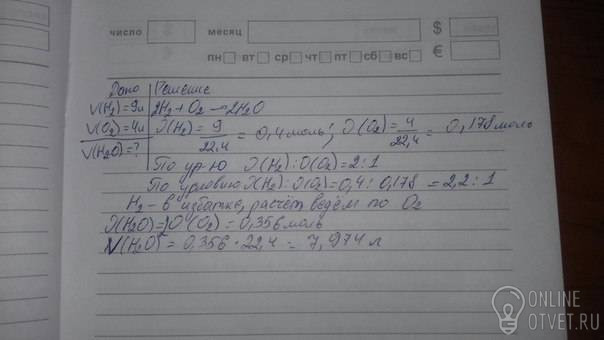 число месяц $
пн вт ср чт пт сб вс €
Дано Решение
V(H₂)=9л 2H₂ + O₂ → 2H₂O
V(O₂)=4л ϑ(H₂) = 9/22,4 = 0,4 моль; ϑ(O₂) = 4/22,4 = 0,178 моль
V(H₂O)=?
По ур-ю ϑ(H₂) : ϑ(O₂) = 2 : 1
По условию ϑ(H₂) : ϑ(O₂) = 0,4 : 0,178 = 2,2 : 1
H₂ - в избытке, расчёт ведём по O₂
ϑ(H₂O) = 2ϑ(O₂) = 0,356 моль
V(H₂O) = 0,356 · 22,4 = 7,974 л
ONLINE
OTVET.RU